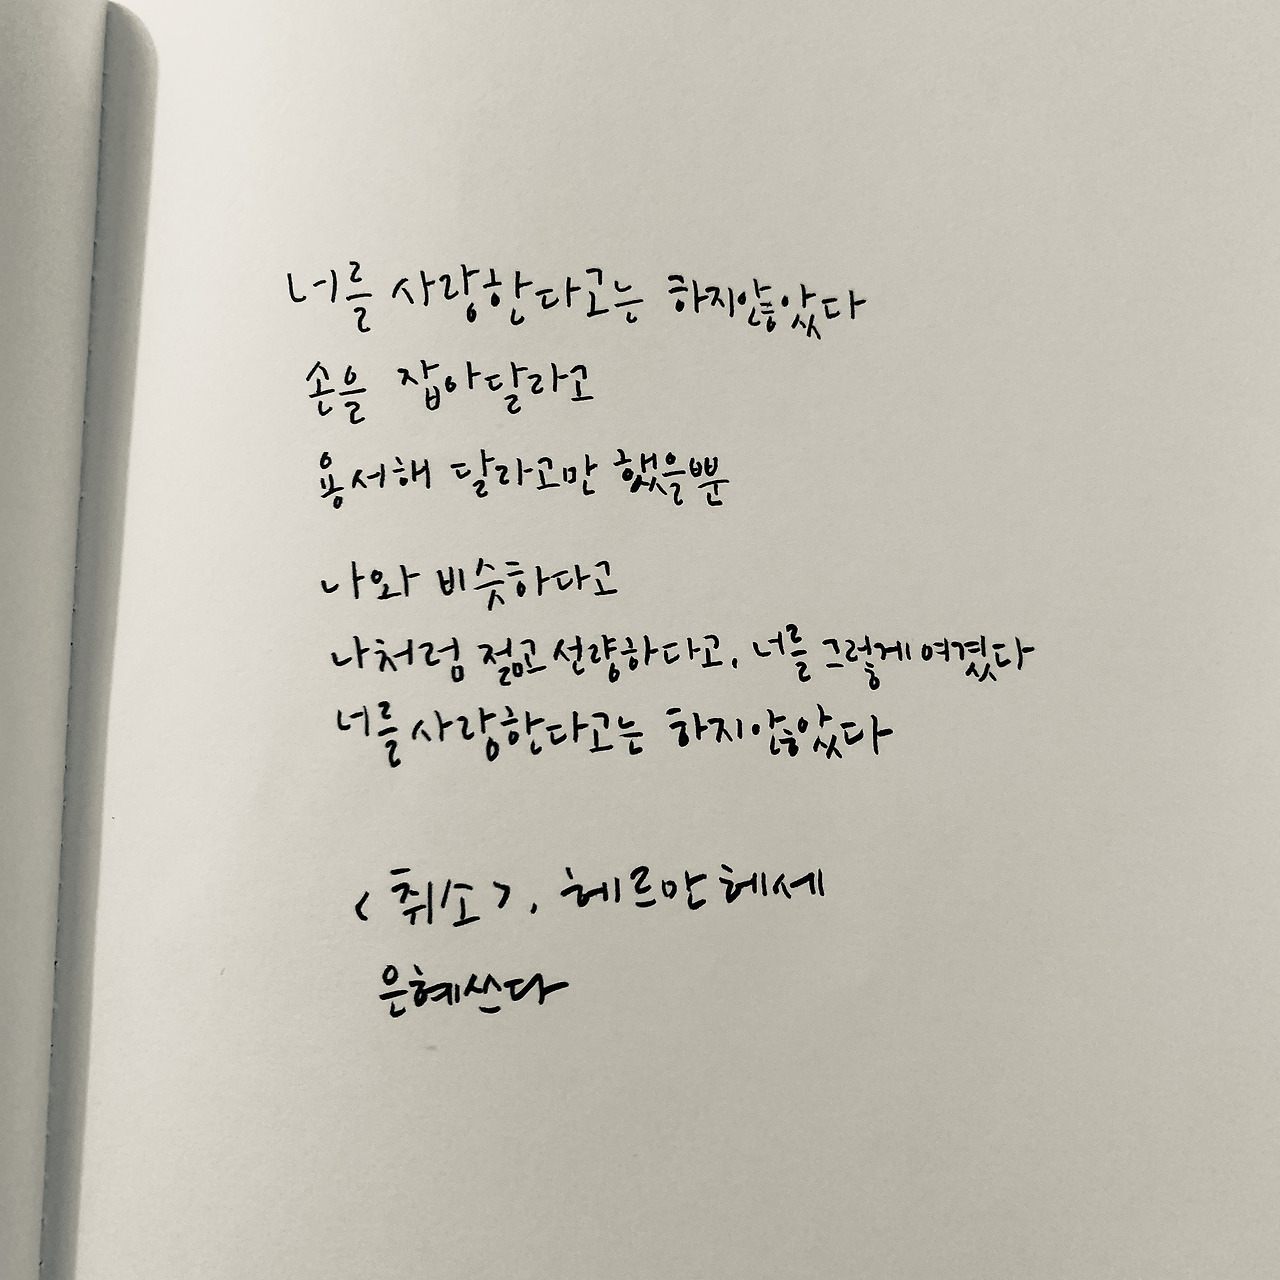 너를 사랑한다고는 하지않았다
손을 잡아달라고
용서해 달라고만 했을뿐
나와 비슷하다고
나처럼 젊고 선량하다고, 너를 그렇게 여겼다
너를 사랑한다고는 하지않았다
<취소>, 헤르만 헤세
은혜쓰다